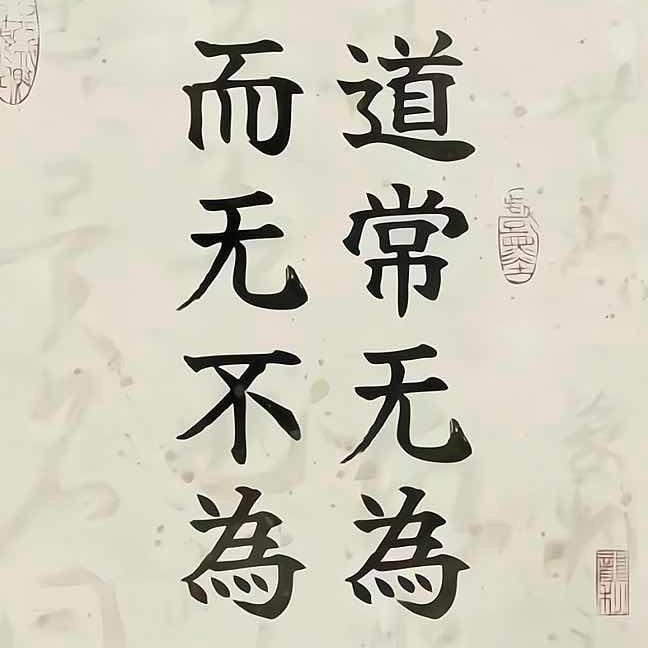 道常无為
而无不為